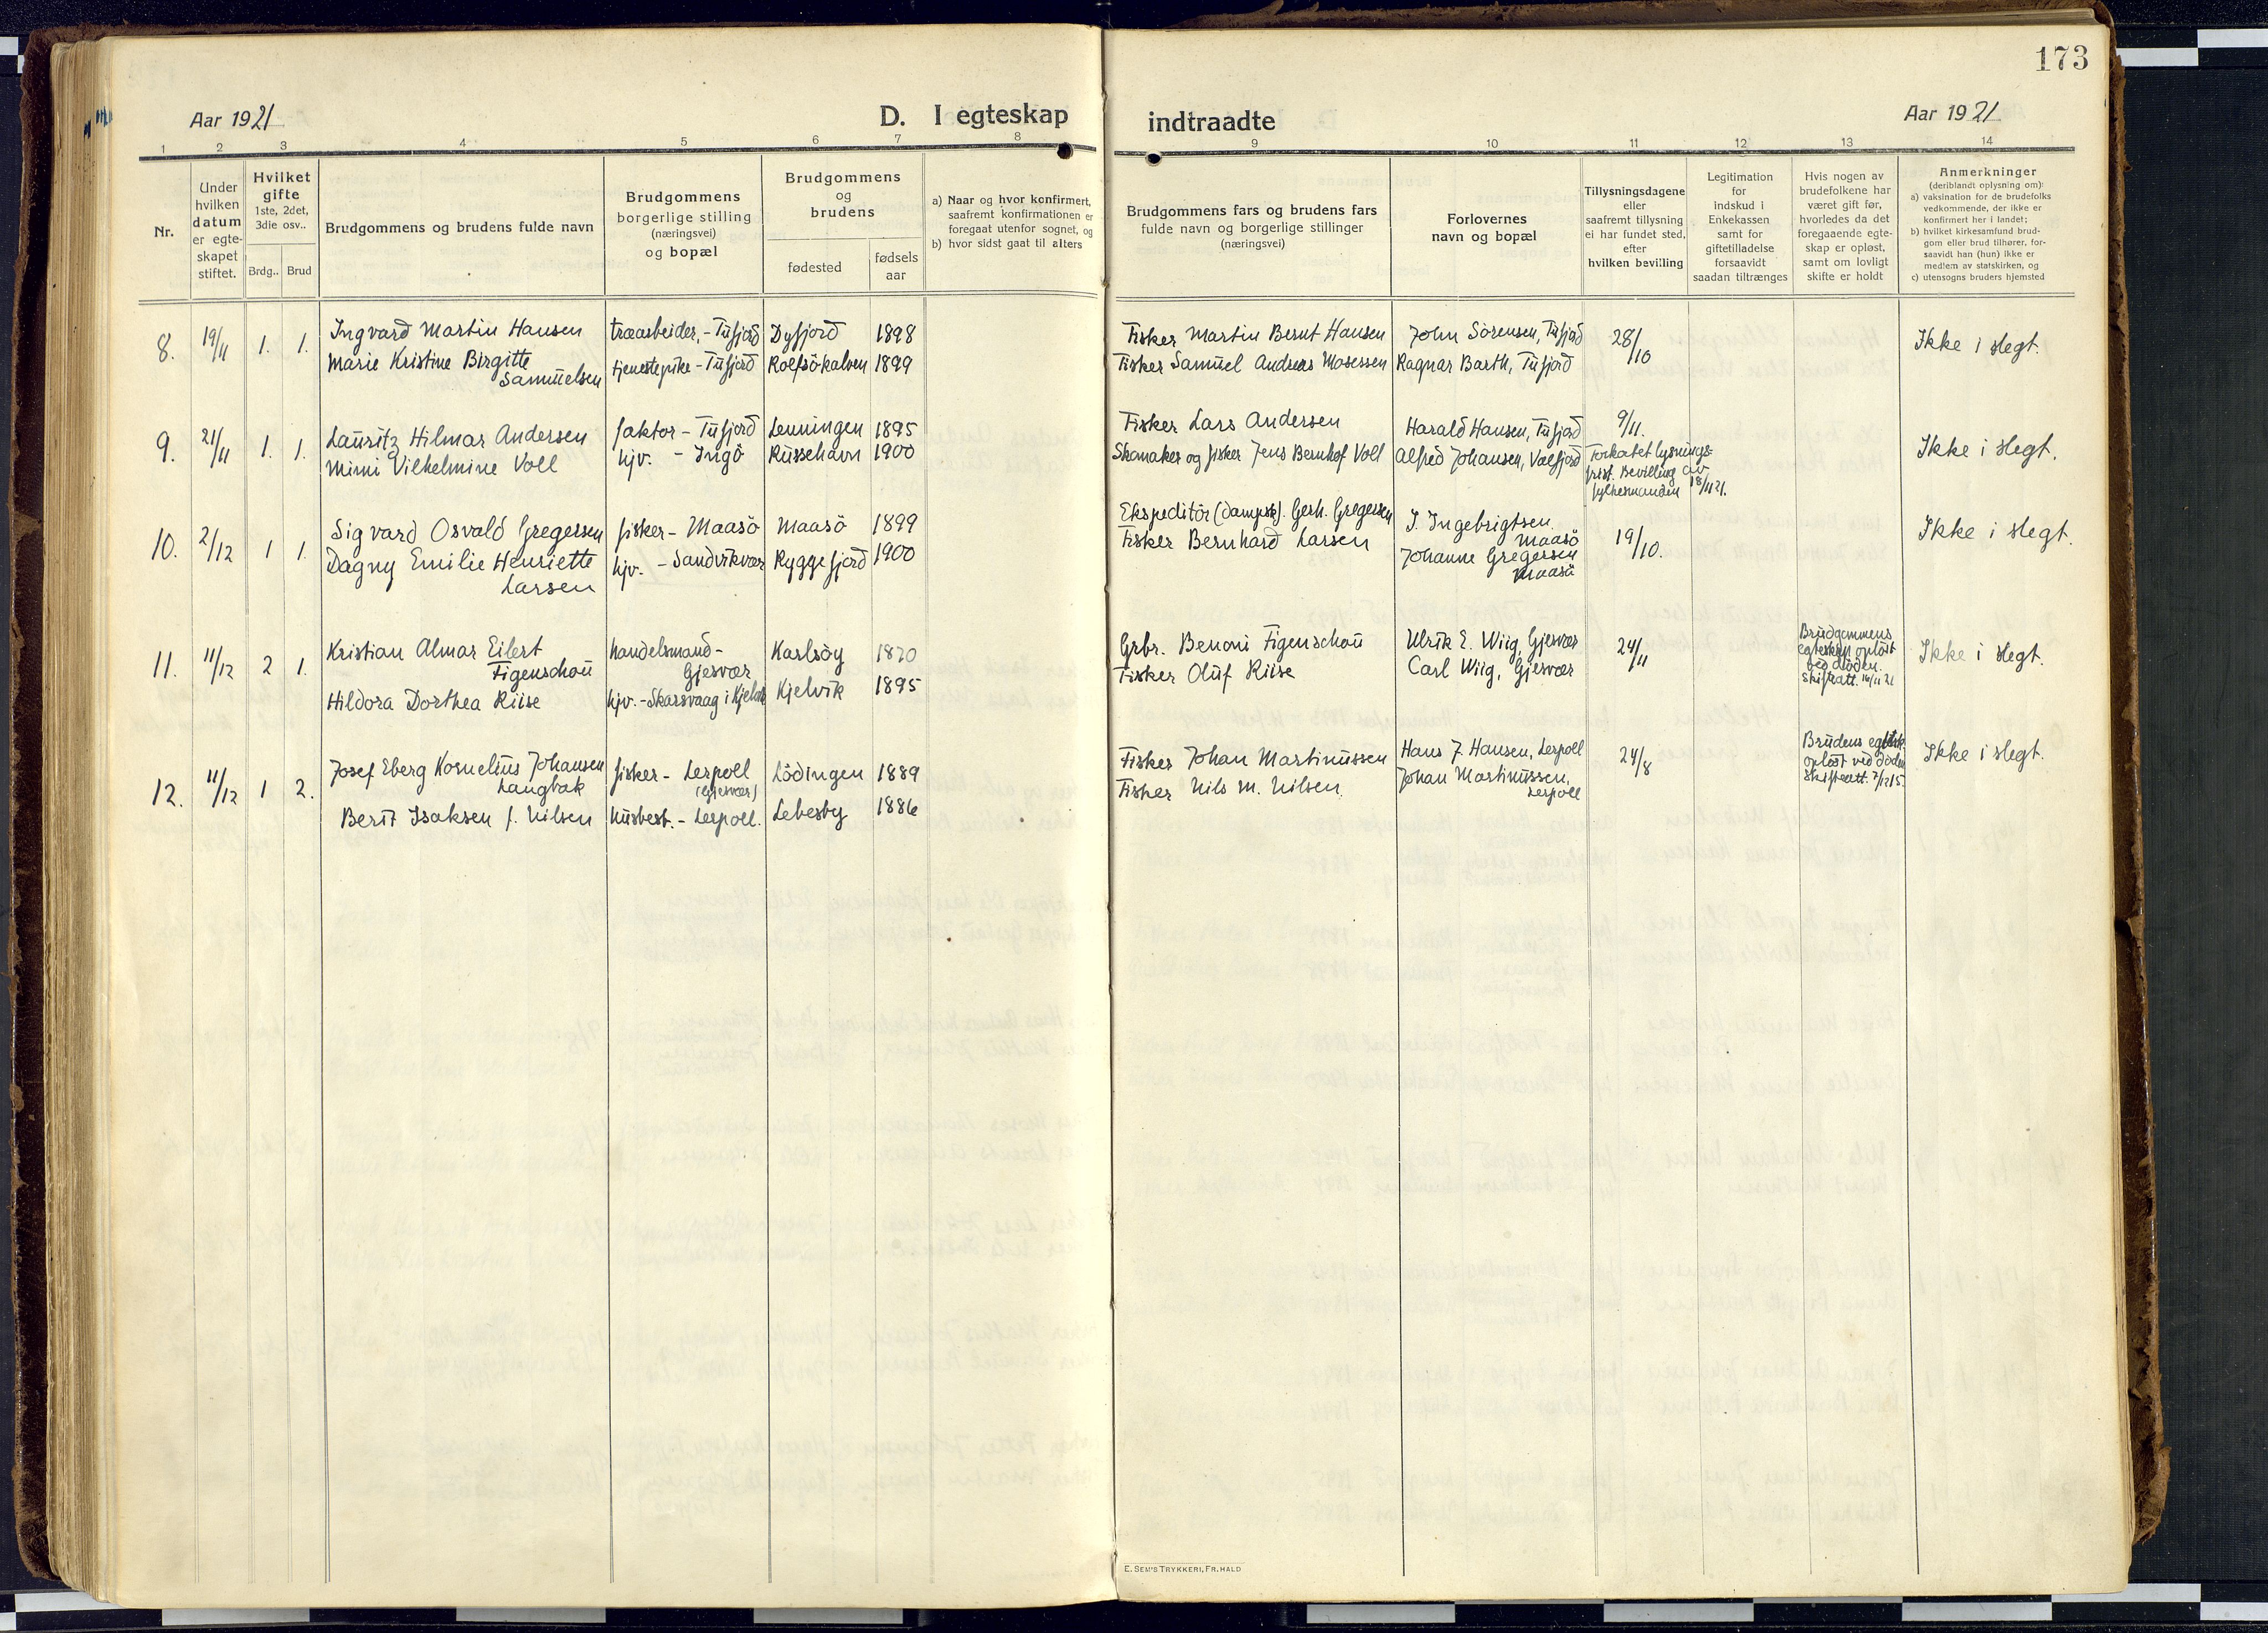 173
Aar 1921
D. I egteskap
indtraadte
Aar 1921
1 2 3 4 5 6 7 8 9 10 11 12 13 14
Nr.
Under
hvilken
datum
er egte-
skapet
stiftet.
Hvilket
gifte
1ste, 2det,
3die osv..
Brdg.. Brud
Brudgommens og brudens fulde navn
Brudgommens
borgerlige stilling
(næringsvei)
og bopæl
Brudgommens
og
brudens
fødested
fødsels
aar
a) Naar og hvor konfirmert,
saafremt konfirmationen er
foregaat utenfor sognet, og
b) hvor sidst gaat til alters
Brudgommens fars og brudens fars
fulde navn og borgerlige stillinger
(næringsvei)
Forlovernes
navn og bopæl
Tillysningsdagene
eller
saafremt tillysning
ei har fundet sted,
efter
hvilken bevilling
Legitimation
for
indskud i
Enkekassen
samt for
giftetilladelse
forsaavidt
saadan tiltrænges
Hvis nogen av
brudefolkene har
været gift før,
hvorledes da det
foregaaende egte-
skap er opløst,
samt om lovligt
skifte er holdt
Anmerkninger
(deriblandt oplysning om):
a) vaksination for de brudefolks
vedkommende, der ikke er
konfirmert her i landet;
b) hvilket kirkesamfund brud-
gom eller brud tilhører, for-
saavidt han (hun) ikke er
medlem av statskirken, og
c) utensogns bruders hjemsted
8. 19/11 1. 1.
Ingvard Martin Hansen
Marie Kristine Birgitte
Samuelsen
træarbeider, - Tufjord
tjenestepike - Tufjord
Dyfjord 1898
Rolfsökalven 1899
Fisker Martin Bernt Hansen
Fisker Samuel Andreas Mosessen
John Sörensen, Tufjord
Ragnar Barth, Tufjord
28/10
Ikke i slegt.
9. 21/11 1. 1.
Lauritz Hilmar Andersen
Mimi Vilhelmine Voll
faktor - Tufjord
hjv. - Ingö
Lenningen 1895
Russehavn 1900
Fisker Lars Andersen
Skomaker og fisker Jens Bernhof Voll
Harald Hansen, Tufjord
Alfred Johansen, Valfjord
9/11.
Forkatet lysnings-
frist. Bevilling av
fylkesmanden 18/11 21.
Ikke i slegt.
10. 2/12 1 1.
Sigvard Osvald Gregersen
Dagny Emilie Henriette
Larsen
fisker - Maasö
hjv. - Sandvikvær
Maasö 1899
Ryggefjord 1900
Ekspeditör (dampsk). Gerh. Gregersen
Fisker Bernhard Larsen
J. Ingebrigtsen
Maasö
Johanne Gregersen
Maasö
19/10.
Ikke i slegt.
11. 11/12 2 1.
Kristian Almar Eilert
Figenschou
Hildora Dorthea Riise
handelsmand -
Gjesvær
hjv. - Skarsvaag i Kjelvik
Karlsöy 1870
Kjelvik 1895
Grbr. Benoni Figenschou
Fisker Oluf Riise
Ulrik E. Wiig, Gjesvær
Carl Wiig, Gjesvær
24/11
Brudgommens
egteskap oplöst
ved döden.
Skifteatt. 16/11 21
Ikke i slegt.
12. 11/12 1 2.
Josef Eberg Kornelius Johansen
Langbak
Berit Isaksen f. Nilsen
fisker - Lerpoll
(Gjesvær)
husbest. - Lerpoll.
Lödingen 1889
Lebesby 1886
Fisker Johan Martinussen
Fisker Nils M. Nilsen
Hans J. Hansen, Lerpoll
Johan Martinussen,
Lerpoll
24/8
Brudens egtesk.
oplöst ved döden
skifteatt. 7/12 15.
Ikke i slegt.
E. SEM'S TRYKKERI, FR.HALD